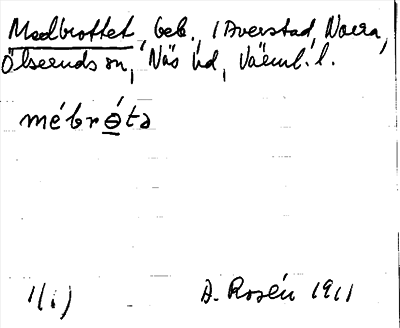 Medbrottet, beb., i Averstad, Norra,
Ölseruds sn, Näs hd, Värml. l.
mébrө́tə
1(i)
D. Rosén 1911